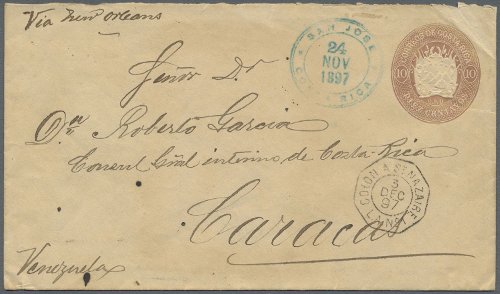 Via New Orleans
SAN JOSE
24
NOV
1897
COSTA RICA
CORREOS DE COSTA RICA
10 10
DIEZ CENTAVOS
Señor Dr.
Dn. Roberto Garcia
Consul Gñal interino de Costa-Rica
COLON A ST NAZAIRE
3
DEC
97
Caracas
Venezuela